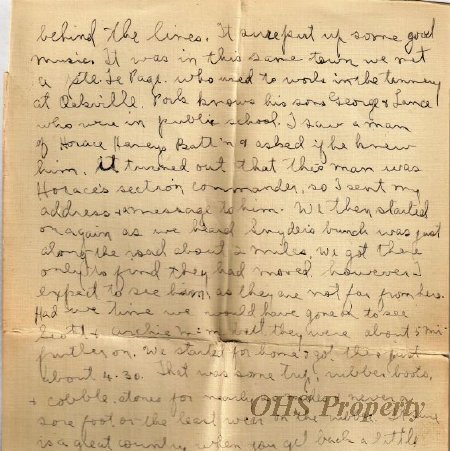 behind the lines. It sure put up some good
music. It was in this same town we met
a Pte Le Page. who used to work in the tannery
at Oakville. Pork knows his sons George & Lance
who were in public school. I saw a man
of Horace Harveys Batt'n & asked if he knew
him. it turned out that this man was
Horace's section commander, so I sent my
address & message to him. We then started
on again as we heard Snyder's bunch was just
along the road about 2 miles. We got there
only to find they had moved however I
expect to see him, as they are not far from here.
Had we time we would have gone on to see
Scott & Archie but they were about 5 mi-
further on. We started for home & got there just
about 4.30. That was some trip, rubber boots,
& cobble stones for nearly never a
sore foot or the least
is a great country when you get back a little
OHS Property